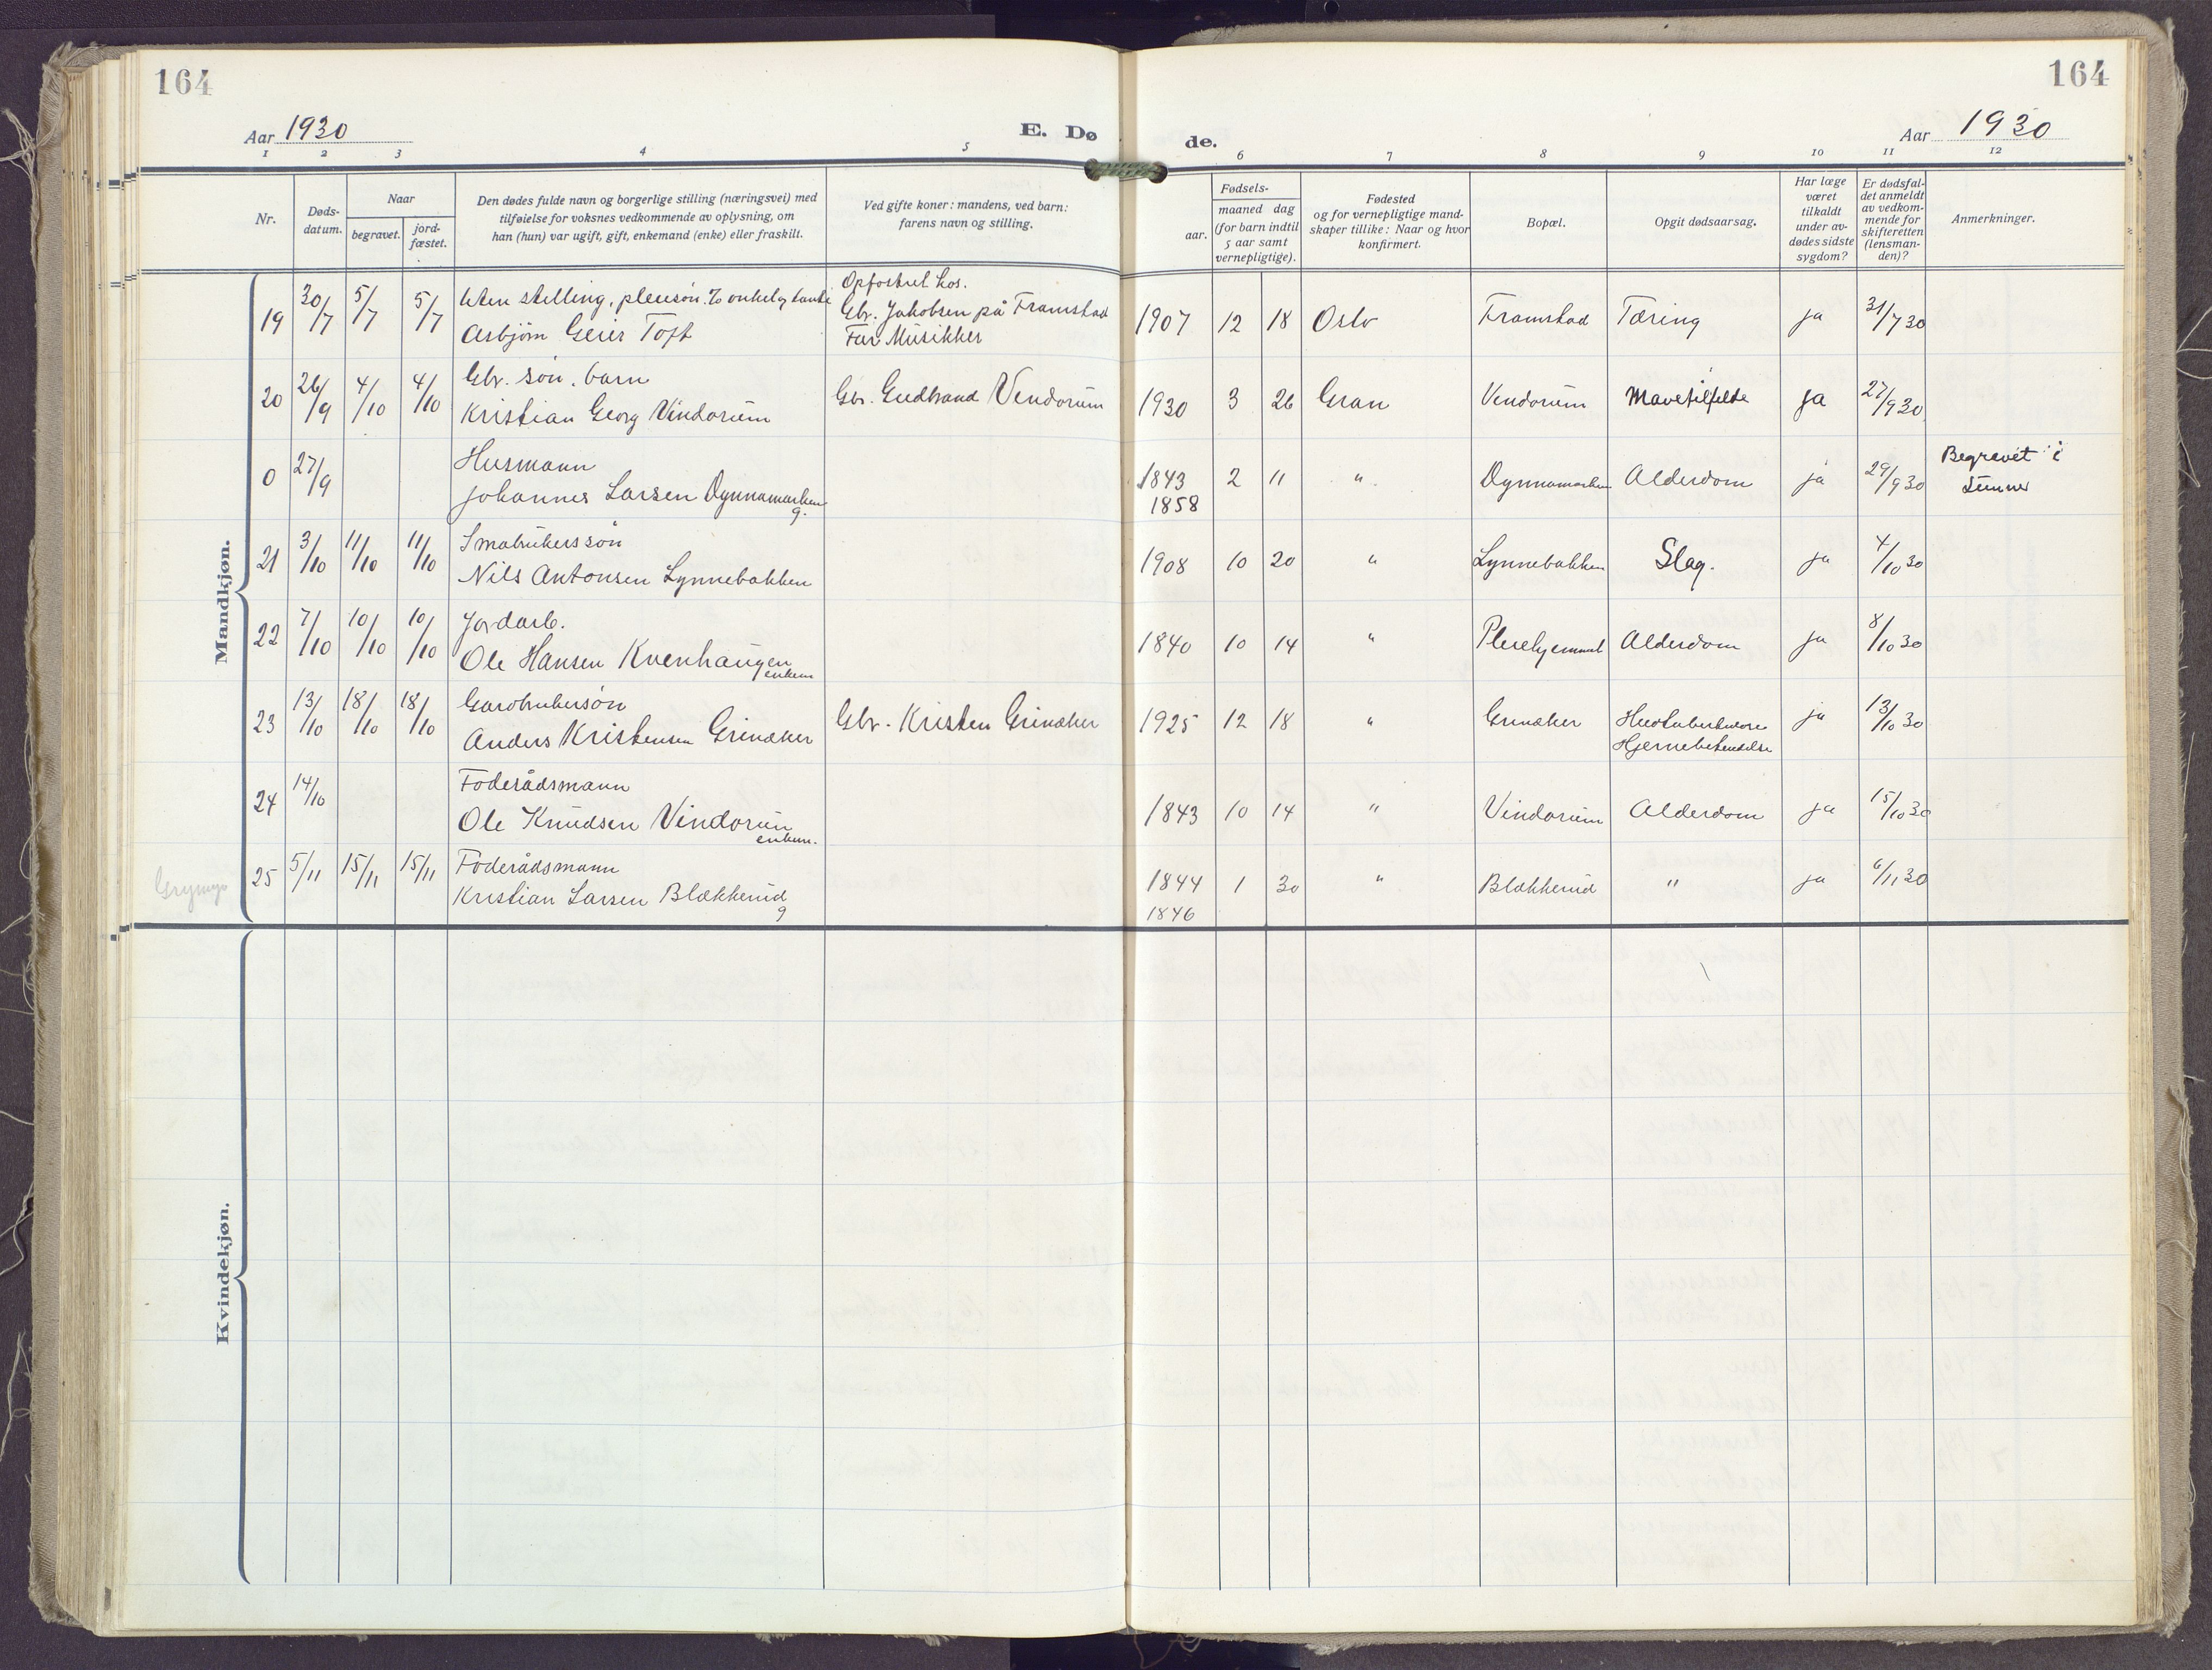 164
164
Aar 1930
E. Dø
de.
Aar 1930
1 2 3 4 5 6 7 8 9 10 11 12
Nr.
Døds-
datum.
Naar
begravet.
jord-
fæstet.
Den dødes fulde navn og borgerlige stilling (næringsvei) med
tilføielse for voksnes vedkommende av oplysning, om
han (hun) var ugift, gift, enkemand (enke) eller fraskilt.
Ved gifte koner: mandens, ved barn:
farens navn og stilling.
Fødsels-
aar.
maaned dag
(for barn indtil
5 aar samt
vernepligtige).
Fødested
og for vernepligtige mand-
skaper tillike: Naar og hvor
konfirmert.
Bopæl.
Opgit dødsaarsag.
Har læge
været
tilkaldt
under av-
dødes sidste
sygdom?
Er dødsfal-
det anmeldt
av vedkom-
mende for
skifteretten
(lensman-
den)?
Anmerkninger.
Mandkjøn.
19 30/7 5/7 5/7 Uten stilling, pleiesøn. onkel og tante
Asbjørn Geier Toft
Opfostret hos.
Gbr. Jakobsen på Framstad
Far Musikker
1907 12 18 Oslo Framstad Tæring ja 31/7 30
20 26/9 4/10 4/10 Gbr. søn. barn
Kristian Georg Vindorum
Gbr. Gudbrand Vendorum
1930 3 26 Gran Vendorum Mavetilfelde ja 27/9 30
0 27/9 Husmann
Johannes Larsen Dynnamarken
g.
1843 2 11 " Dynnamarken Alderdom ja 29/9 30
1858
Begravet i
Lunner
21 3/10 11/10 11/10 Småbrukerssøn
Nils Antonsen Lynnebakken
1908 10 20 " Lynnebakken Slag. ja 4/10 30
22 7/10 10/10 10/10 Jordarb.
Ole Hansen Kvenhaugen
enkem
1840 10 14 " Pleiehjemmet Alderdom ja 8/10 30
23 13/10 18/10 18/10 Gardbrukersøn
Anders Kristensen Grinaker
Gbr. Kristen Grinaker
1925 12 18 " Grinaker
Hjernebetendelse
ja 13/10 30
24 14/10 Føderådsmann
Ole Knudsen Vindorum
enkem.
1843 10 14 " Vindorum Alderdom ja 15/10 30
25 5/11 15/11 15/11 Føderådsmann
Kristian Larsen Blækkerud
g
1844 1 30 " Blækkerud " ja 6/11 30
1846
Kvindekjøn.